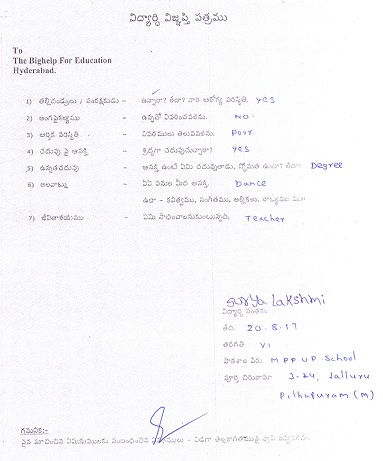 విద్యార్థి విజ్ఞప్తి పత్రము
To
The Bighelp For Education
Hyderabad.
1) తల్లిదండ్రులు / సంరక్షకుడు - ఉన్నారా? లేదా? వారి ఆరోగ్య పరిస్థితి. YES
2) అంగవైకల్యము - ఉన్నచో వివరించవలెను. NO.
3) ఆర్థిక పరిస్థితి. - వివరములు తెలుపవలెను. Poor
4) చదువు పై ఆసక్తి - శ్రద్ధగా చదువుచున్నారా? YES
5) ఉన్నతచదువు - ఆసక్తి ఉంటే ఏమి చదువుతారు, స్తోమత ఉందా? లేదా? Degree
6) అలవాట్లు - ఏఏ పనుల మీద ఆసక్తి. Dance
ఉదా - కవిత్వము, సంగీతము, అల్లికలు, నాట్యము
7) జీవితాశయము - ఏమి సాధించాలనుకుంటున్నది. Teacher
Surya Lakshmi
విద్యార్థి సంతకం
తేది. 20.8.17
తరగతి VI
పాఠశాల పేరు MPPUP School
పూర్తి చిరునామా 3-24, Jalluru
Pithapuram (M)
గమనిక:-
పైన సూచించిన విషయములకు సంబంధించిన